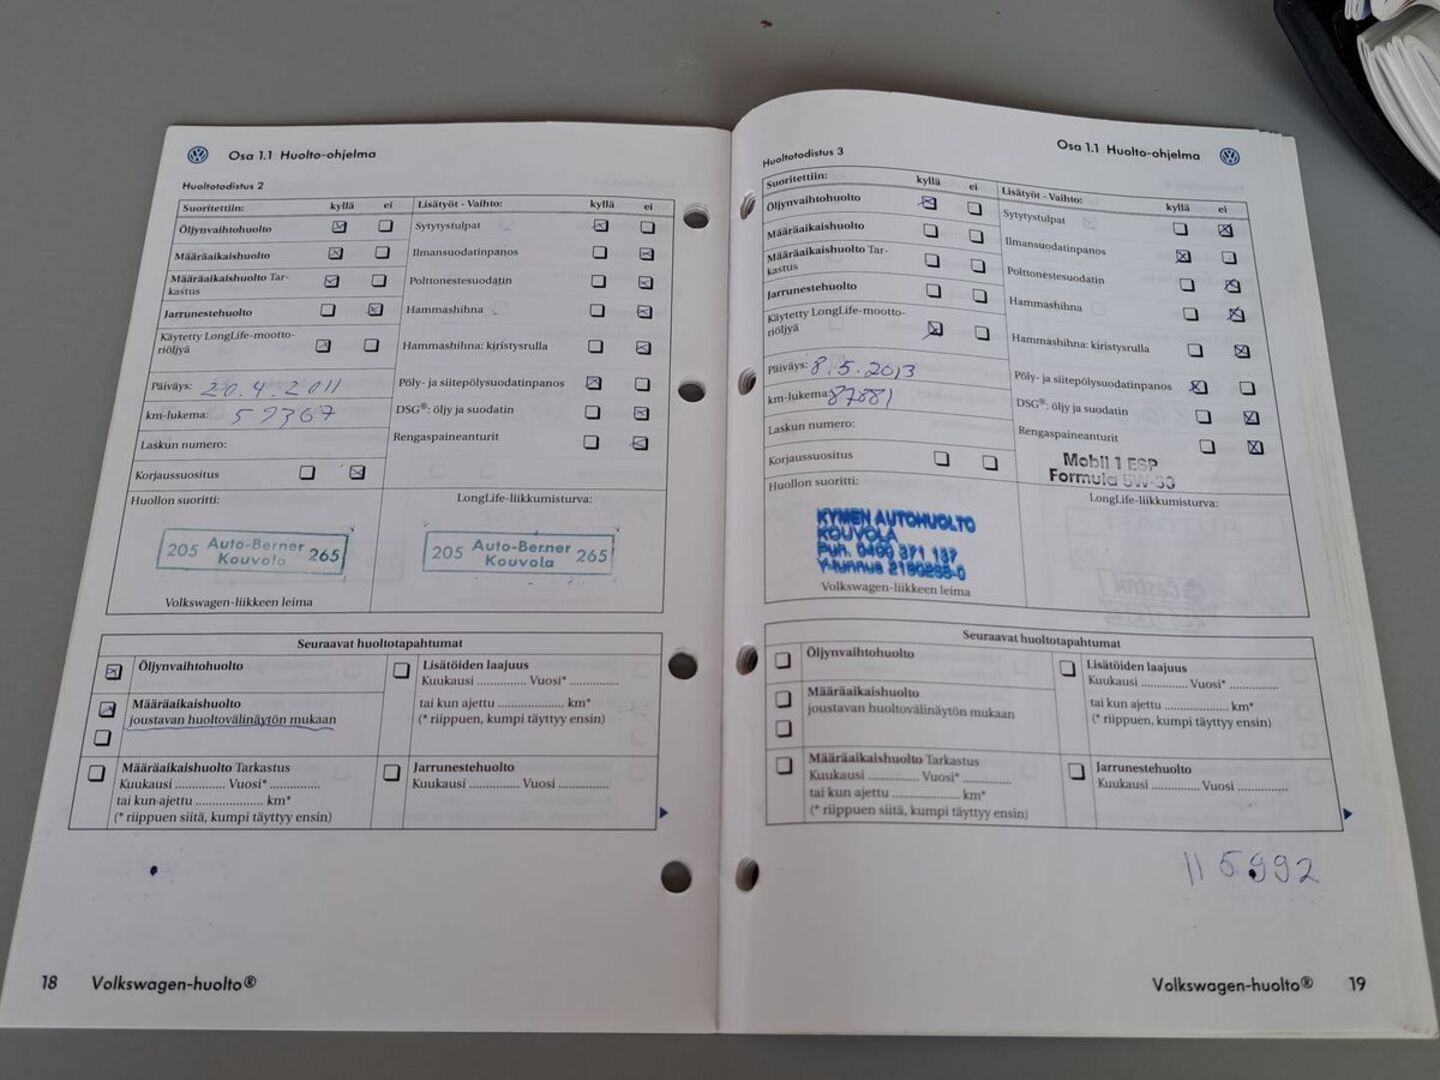 Osa 1.1 Huolto-ohjelma
Huoltotodistus 2
Suoritettiin: kyllä ei Lisätyöt - Vaihto: kyllä ei
Öljynvaihtohuolto Sytytystulpat
Määräaikaishuolto Ilmansuodatinpanos
Määräaikaishuolto Tar-
kastus
Polttonestesuodatin
Jarrunestehuolto Hammashihna
Käytetty LongLife-mootto-
riöljyä
Hammashihna: kiristysrulla
Päiväys: 20.4.2011 Pöly- ja siitepölysuodatinpanos
km-lukema: 59367 DSG®: öljy ja suodatin
Laskun numero: Rengaspaineanturit
Korjaussuositus
Huollon suoritti: LongLife-liikkumisturva:
205 Auto-Berner Kouvola 265
205 Auto-Berner Kouvola 265
Volkswagen-liikkeen leima
Seuraavat huoltotapahtumat
Öljynvaihtohuolto
Määräaikaishuolto
joustavan huoltovälinäytön mukaan
Lisätöiden laajuus
Kuukausi .............. Vuosi* ..............
tai kun ajettu .................... km*
(* riippuen, kumpi täyttyy ensin)
Määräaikaishuolto Tarkastus
Kuukausi ............ Vuosi* ..............
tai kun ajettu .................... km*
(* riippuen siitä, kumpi täyttyy ensin)
Jarrunestehuolto
Kuukausi .............. Vuosi ..............
18 Volkswagen-huolto®
Osa 1.1 Huolto-ohjelma
Huoltotodistus 3
Suoritettiin: kyllä ei Lisätyöt - Vaihto: kyllä ei
Öljynvaihtohuolto Sytytystulpat
Määräaikaishuolto Ilmansuodatinpanos
Määräaikaishuolto Tar-
kastus
Polttonestesuodatin
Jarrunestehuolto Hammashihna
Käytetty LongLife-mootto-
riöljyä
Hammashihna: kiristysrulla
Päiväys: 8.5.2013 Pöly- ja siitepölysuodatinpanos
km-lukema: 87881 DSG®: öljy ja suodatin
Laskun numero: Rengaspaineanturit
Korjaussuositus
Mobil 1 ESP
Formula 5W-30
Huollon suoritti: LongLife-liikkumisturva:
KYMEN AUTOHUOLTO
KOUVOLA
Puh. 0400 371 137
Y-tunnus
Volkswagen-liikkeen leima
Seuraavat huoltotapahtumat
Öljynvaihtohuolto
Määräaikaishuolto
joustavan huoltovälinäytön mukaan
Lisätöiden laajuus
Kuukausi .............. Vuosi* ..............
tai kun ajettu .................... km*
(* riippuen, kumpi täyttyy ensin)
Määräaikaishuolto Tarkastus
Kuukausi .............. Vuosi* ..............
tai kun ajettu .................... km*
(* riippuen siitä, kumpi täyttyy ensin)
Jarrunestehuolto
Kuukausi .............. Vuosi ..............
115992
Volkswagen-huolto® 19